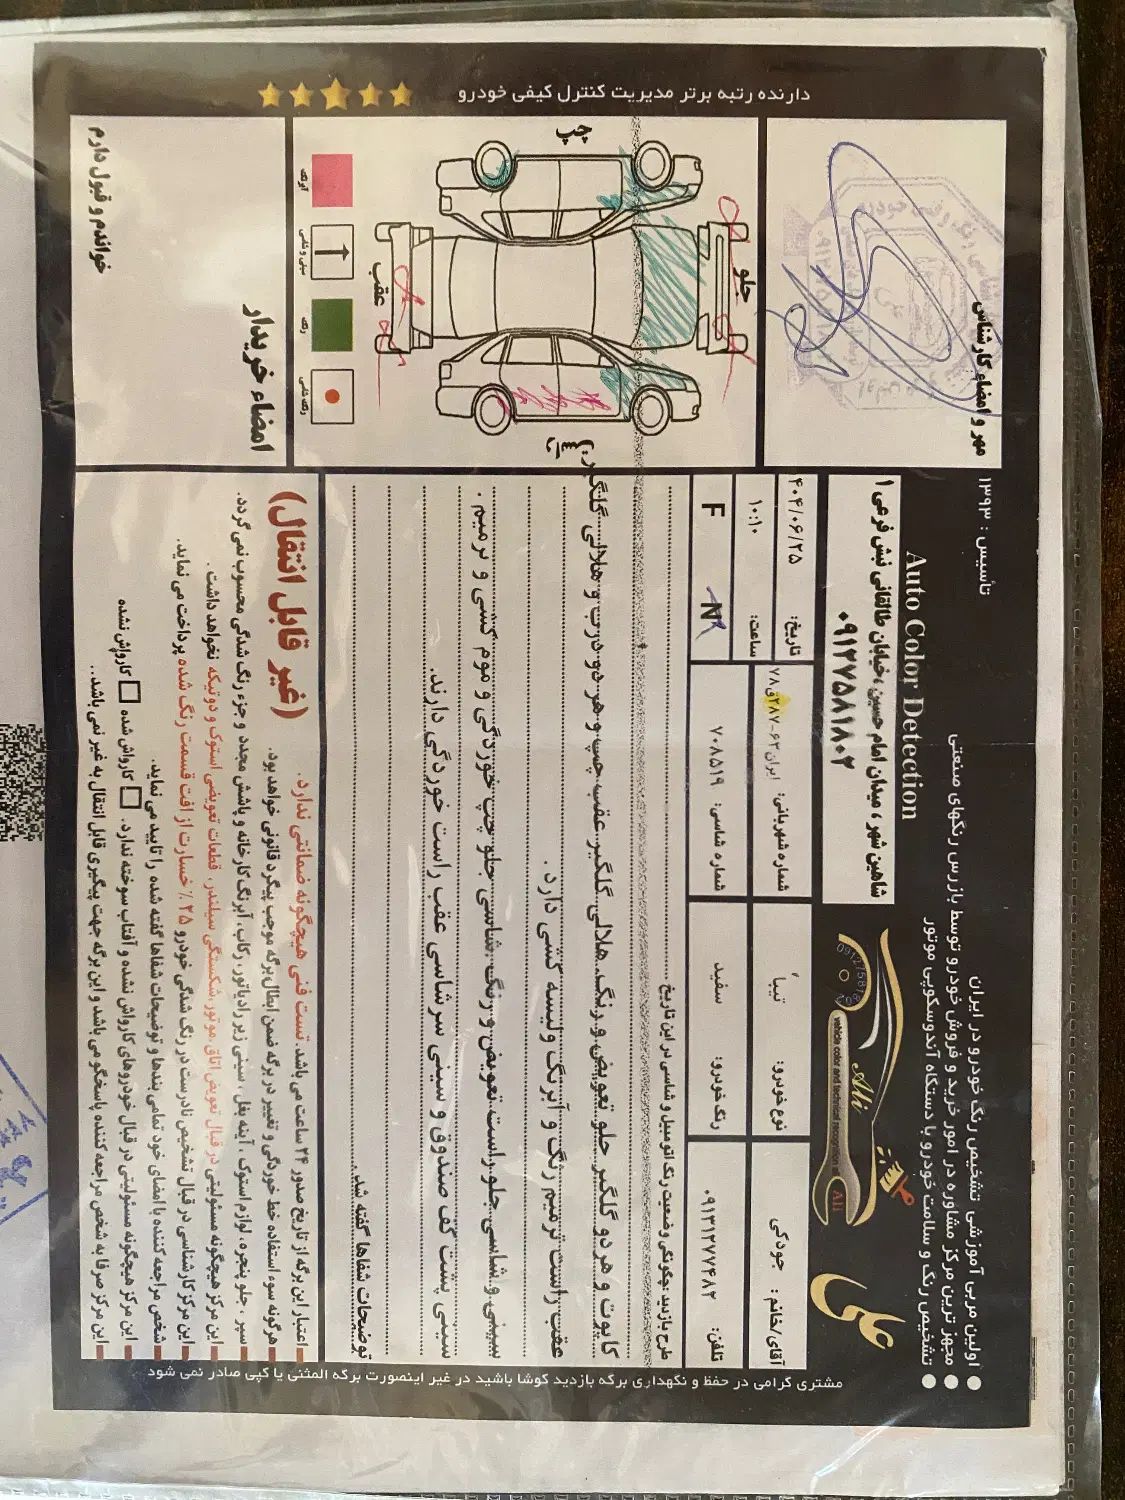 دارنده رتبه برتر مدیریت کنترل کیفی خودرو
تأسیس : ۱۳۹۳
اولین مربی آموزشی تشخیص رنگ خودرو در ایران
مجهز ترین مرکز مشاوره در امور خرید و فروش خودرو توسط بازرس رنگهای صنعتی
تشخیص رنگ و سلامت خودرو با دستگاه آندوسکوپی موتور
Auto Color Detection
علی
Ali
vehicle color and technical recognition
ALI
شاهین شهر ، میدان امام حسین ،خیابان طالقانی نبش فرعی ۱
۰۹۱۲۷۵۸۱۸۰۲
آقای/خانم : جودکی
نوع خودرو: تیبا
شماره شهربانی: ایران ۶۳-۲۸۷ق۷۸
تاریخ: ۴۰۴/۰۶/۲۵
ساعت: ۱۰:۱۰
تلفن: ۰۹۱۳۱۲۷۷۴۸۲
رنگ خودرو: سفید
شماره شاسی: ۷۰۸۵۱۹
N F
طرح بازدید :چگونگی وضعیت رنگ اتومبیل و شاسی در این تاریخ
کاپوت و هر دو گلگیر جلو تعویض و رنگ. هلالی گلگیر عقب چپ و هر دو درب و هلالی گلگیر
عقب راست ترمیم رنگ و آبرنگ و لیسه کشی دارد .
سینی و شاسی جلو راست تعویض و رنگ. شاسی جلو چپ خوردگی و موم کشی و ترمیم .
سینی پشت کف صندوق و سینی سرشاسی عقب راست خوردگی دارند.
توضیحات شفاها گفته شد.
مهر و امضاء کارشناس
جلو
عقب
چپ
راست
آبرنگ
سینی و شاسی
رنگ
رنگ شاسی
امضاء خریدار
خواندم و قبول دارم
(غیر قابل انتقال)
اعتبار این برگه از تاریخ صدور ۲۴ ساعت می باشد. تست فنی هیچگونه ضمانتی ندارد.
هرگونه سوء استفاده خط خوردگی و تغییر در برگه ضمن ابطال برگه موجب پیگرد قانونی خواهد بود.
سپر، جلو پنجره، لوازم استوک ، آینه بغل ، سینی زیر رادیاتور، رکاب، آبرنگ کارخانه و پاشش مجدد و جزء رنگ شدگی محسوب نمی گردد.
این مرکز هیچگونه مسئولیتی در قبال تعویض اتاق،موتور،شکستگی سیلندر، قطعات تعویضی استوک و دوتیکه نخواهد داشت.
این مرکز کارشناسی در قبال تشخیص نادرست در رنگ شدگی خودرو ۲۵ ٪ خسارت از افت قسمت رنگ شده پرداخت می نماید.
شخص مراجعه کننده با امضای خود تمامی بندها و توضیحات شفاها گفته شده را تایید می نماید.
این مرکز هیچگونه مسئولیتی در قبال خودروهای کارواش نشده و آفتاب سوخته ندارد. کارواش شده کارواش نشده
این مرکز صرفا به شخص مراجعه کننده پاسخگو می باشد و این برگه جهت پیگیری قابل انتقال به غیر نمی باشد..
مشتری گرامی در حفظ و نگهداری برگه بازدید کوشا باشید در غیر اینصورت برگه المثنی یا کپی صادر نمی شود